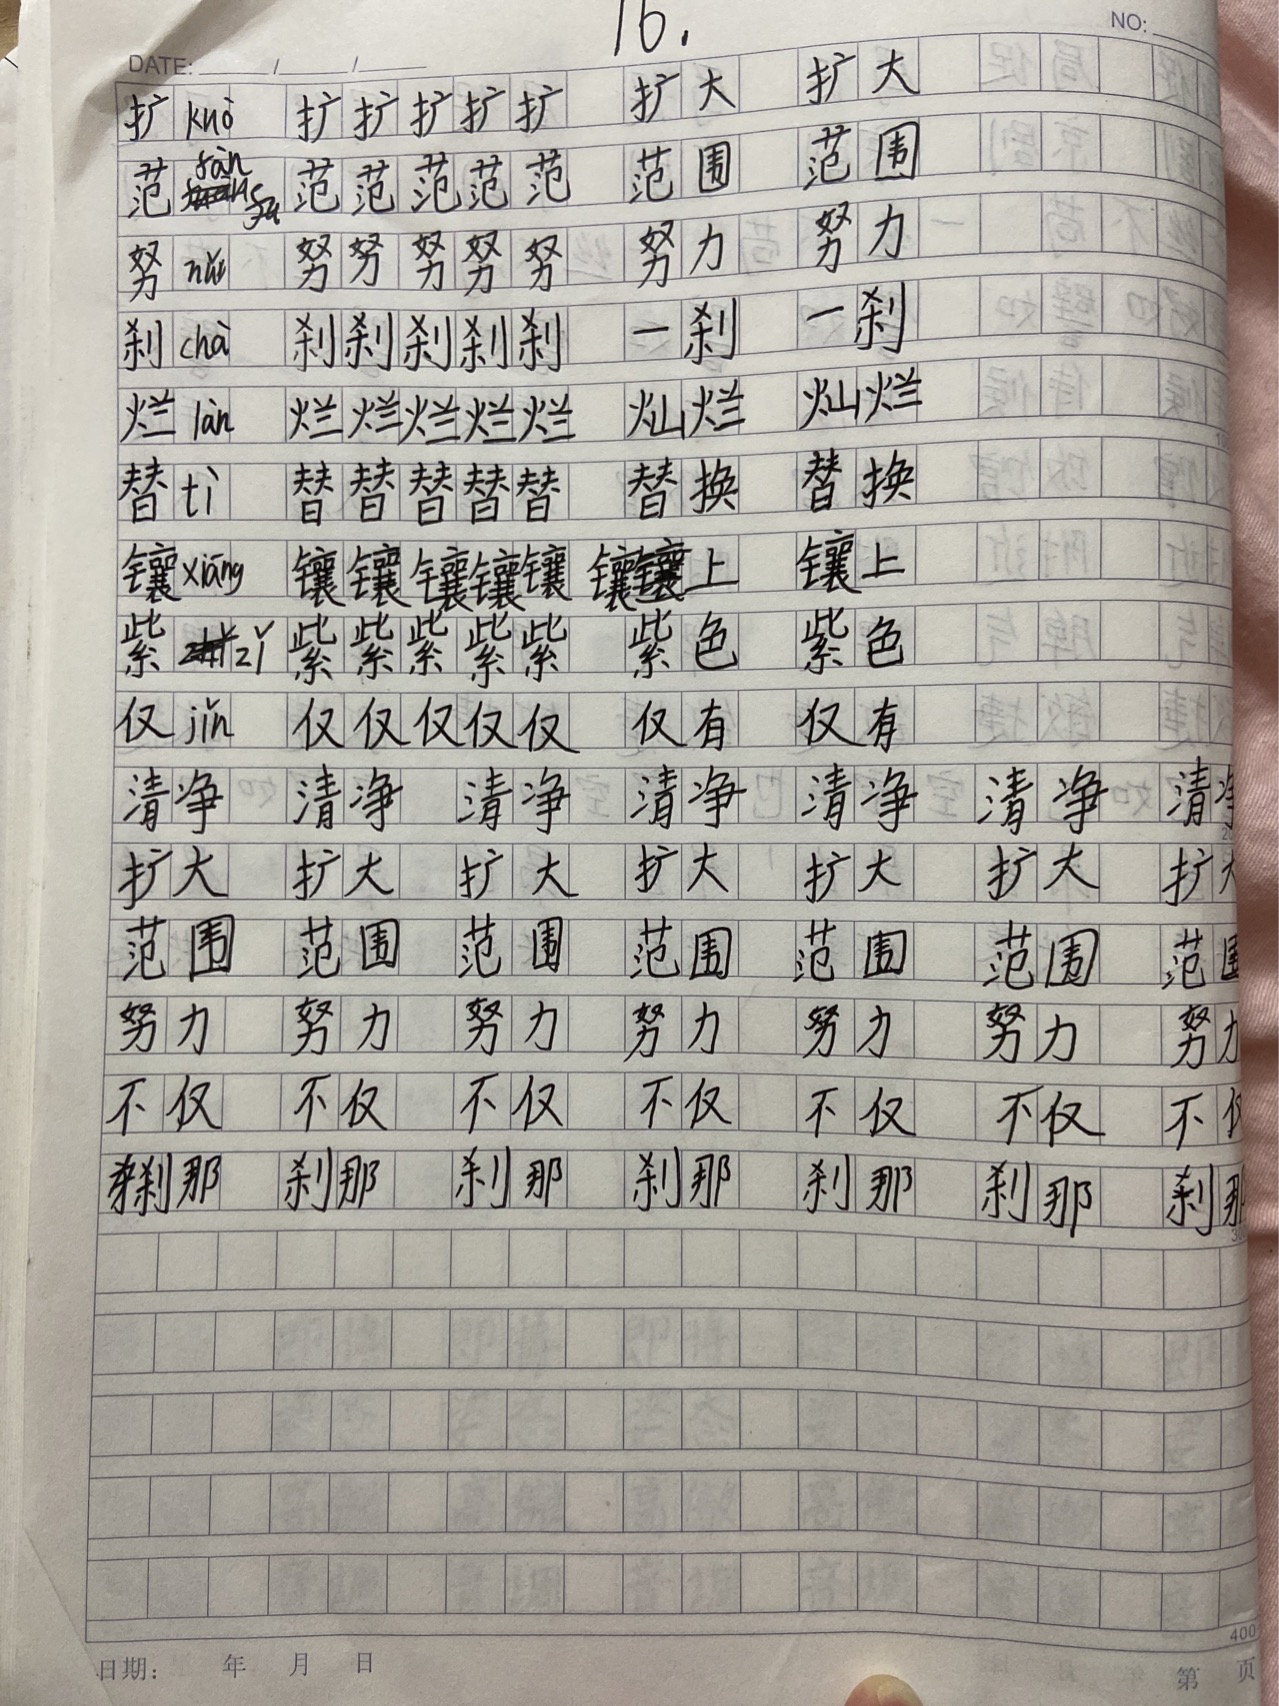 16.
NO:
DATE: / /
扩 kuò 扩 扩 扩 扩 扩 扩大 扩大
范 fàn 范 范 范 范 范 范围 范围
努 nǔ 努 努 努 努 努 努力 努力
刹 chà 刹 刹 刹 刹 刹 一刹 一刹
烂 làn 烂 烂 烂 烂 烂 灿烂 灿烂
替 tì 替 替 替 替 替 替换 替换
镶 xiāng 镶 镶 镶 镶 镶 镶上 镶上
紫 zǐ 紫 紫 紫 紫 紫 紫色 紫色
仅 jǐn 仅 仅 仅 仅 仅 仅有 仅有
清净 清净 清净 清净 清净 清净 清净
扩大 扩大 扩大 扩大 扩大 扩大 扩大
范围 范围 范围 范围 范围 范围 范围
努力 努力 努力 努力 努力 努力 努力
不仅 不仅 不仅 不仅 不仅 不仅 不仅
刹那 刹那 刹那 刹那 刹那 刹那 刹那
400
日期: 年 月 日 第 页